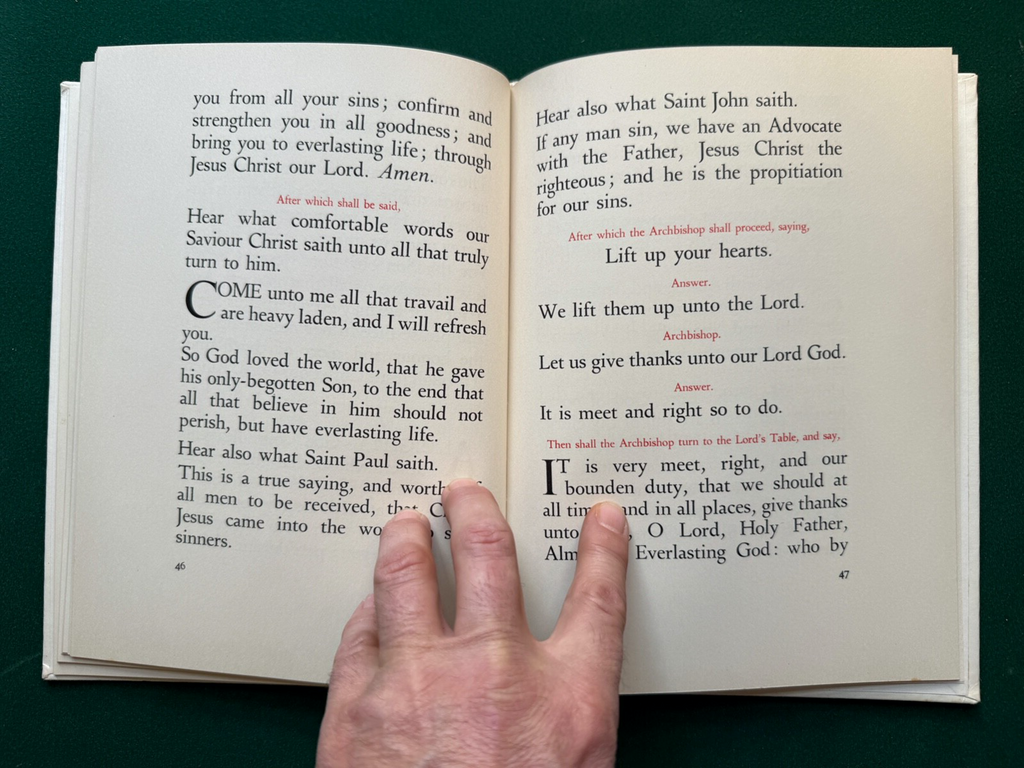 you from all your sins; confirm and
strengthen you in all goodness; and
bring you to everlasting life; through
Jesus Christ our Lord. Amen.
After which shall be said,
Hear what comfortable words our
Saviour Christ saith unto all that truly
turn to him.
COME unto me all that travail and
are heavy laden, and I will refresh
you.
So God loved the world, that he gave
his only-begotten Son, to the end that
all that believe in him should not
perish, but have everlasting life.
Hear also what Saint Paul saith.
This is a true saying, and
all men to be received,
Jesus came into the
sinners.
46
Hear also what Saint John saith.
If any man sin, we have an Advocate
with the Father, Jesus Christ the
righteous; and he is the propitiation
for our sins.
After which the Archbishop shall proceed, saying,
Lift up your hearts.
Answer.
We lift them up unto the Lord.
Archbishop.
Let us give thanks unto our Lord God.
Answer.
It is meet and right so to do.
Then shall the Archbishop turn to the Lord's Table, and say,
IT is very meet, right, and our
bounden duty, that we should at
all and in all places, give thanks
unto , O Lord, Holy Father,
Everlasting God: who by
47